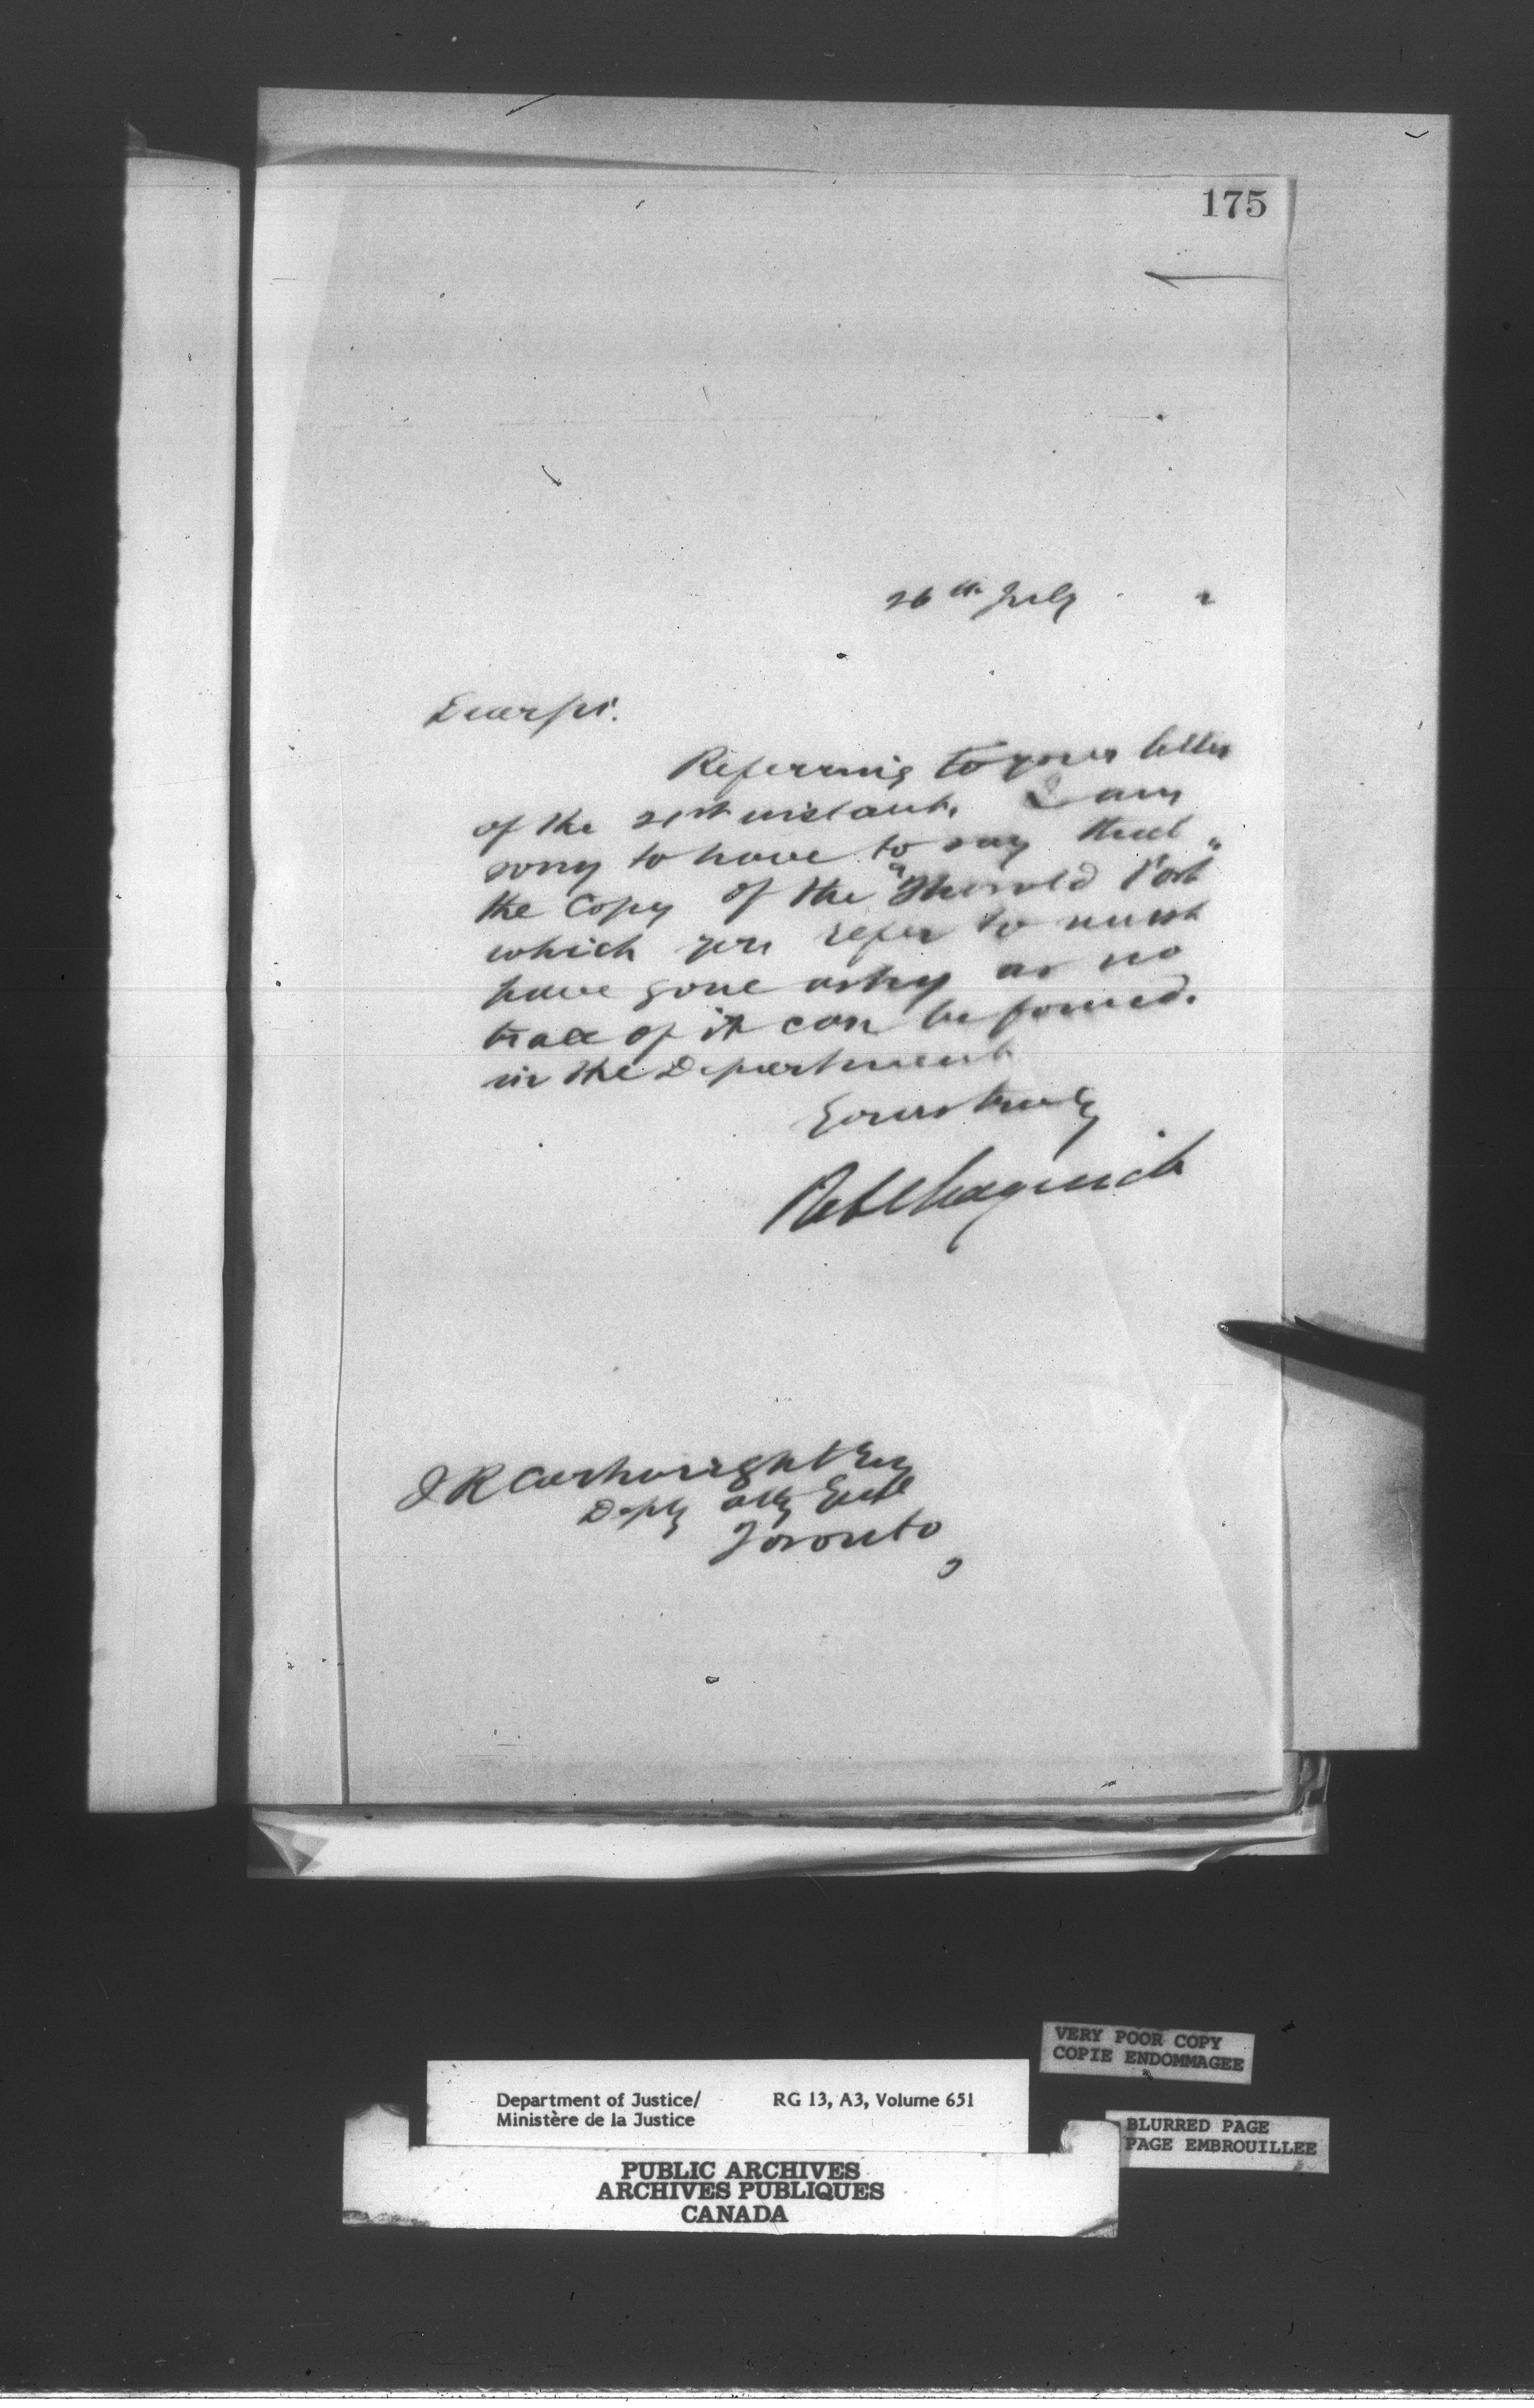 175
26th July 2
Dear Sir.
Referring to your letter
of the 21st instant. I am
sorry to have to say that
the Copy of the "Thorold Post"
which you refer to must
have gone astray as no
trace of it can be found.
in the Department
Yours truly
J R Cartwright Esq
Depty Atty Genl
Toronto
VERY POOR COPY
COPIE ENDOMMAGEE
Department of Justice/ RG 13, A3, Volume 651
Ministère de la Justice
BLURRED PAGE
PAGE EMBROUILLEE
PUBLIC ARCHIVES
ARCHIVES PUBLIQUES
CANADA